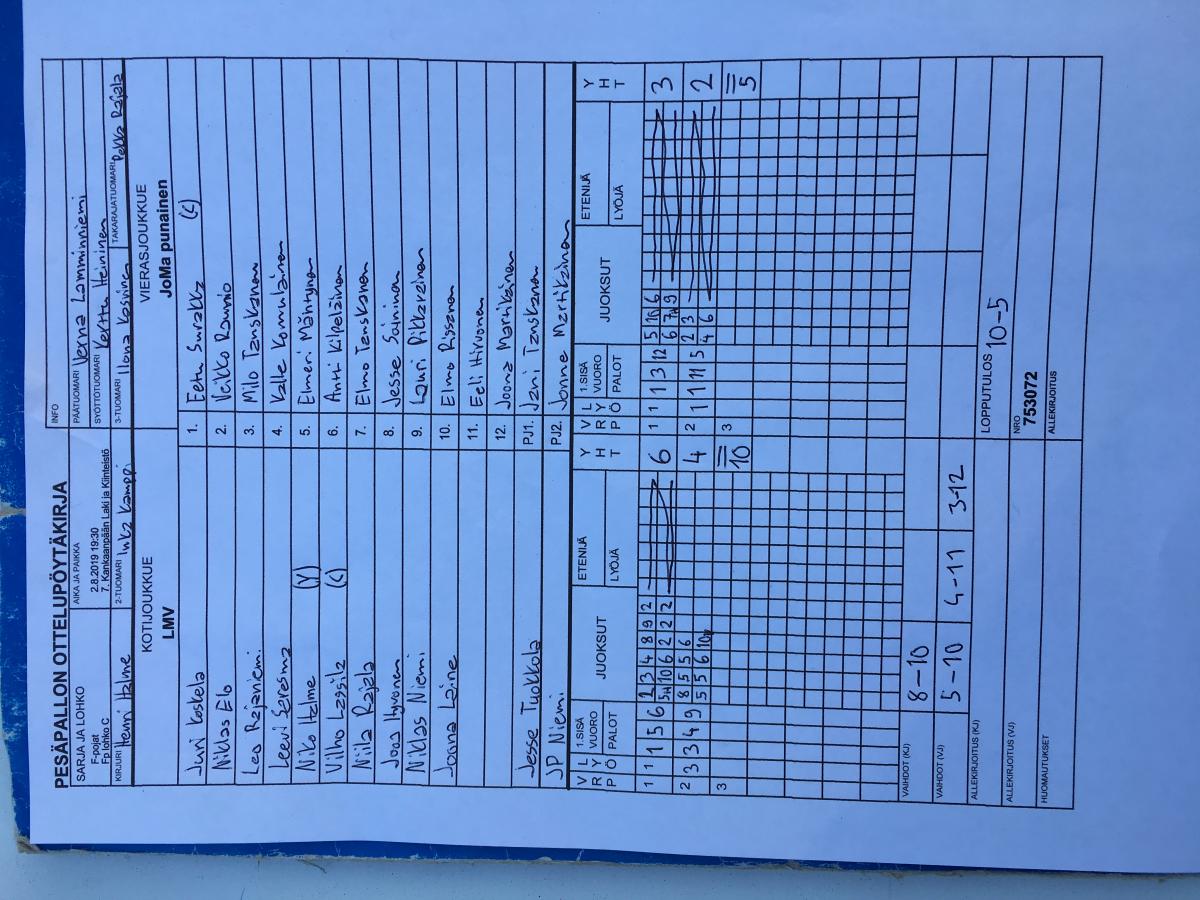 PESÄPALLON OTTELUPÖYTÄKIRJA
INFO
SARJA JA LOHKO
F-pojat
Fp lohko C
AIKA JA PAIKKA
2.8.2019 19:30
7. Kankaanpään Laki ja Kiinteistö
PÄÄTUOMARI Verna Lamminniemi
SYÖTTÖTUOMARI Kerttu Heininen
KIRJURI Henri Halme
2-TUOMARI Inka Kamppi
3-TUOMARI Ilona Kosninen
TAKARAJATUOMARI Pekka Rajala
KOTIJOUKKUE
LMV
VIERASJOUKKUE
JoMa punainen
Juri Koskela 1. Eetu Surakka (C)
Niklas Elo 2. Veikko Raunio
Leo Rajaniemi 3. Milo Tanskanen
Leevi Seresma 4. Kalle Komulainen
Niko Halme (V) 5. Elmeri Mäntynen
Vilho Lassila (C) 6. Antti Kilpeläinen
Niila Rajala 7. Elmo Tanskanen
Joos Hyvönen 8. Jesse Soininen
Niklas Niemi 9. Lauri Pikkarainen
Joona Laine 10. Elmo Rissanen
11. Eeli Hirvonen
12. Joona Martikainen
Jesse Tuokkola PJ1. Jani Tanskanen
JP Niemi PJ2. Jonne Martikainen
V L R Y P Ö 1.SISÄ VUORO PALOT JUOKSUT ETENIJÄ LYÖJÄ Y H T V L R Y P Ö 1.SISÄ VUORO PALOT JUOKSUT ETENIJÄ LYÖJÄ Y H T
1 1 1 5 6 2 3 4 8 9 2 6 1 1 1 3 12 5 10 6 3
10 6 2 2 2 6 9
2 3 3 4 9 8 5 5 6 4 2 1 1 11 5 2 3 2
5 5 6 4 6
3 10 3 5
VAIHDOT (KJ) 8-10
VAIHDOT (VJ) 5-10 4-11 3-12
ALLEKIRJOITUS (KJ)
LOPPUTULOS 10-5
ALLEKIRJOITUS (VJ)
NRO
753072
HUOMAUTUKSET
ALLEKIRJOITUS